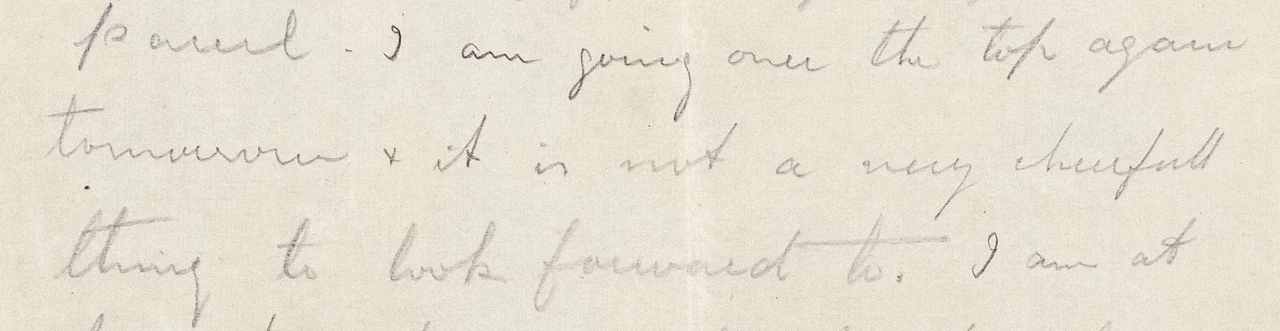 parcel. I am going over the top again
tomorrow + it is not a very cheerfull
thing to look forward to. I am at